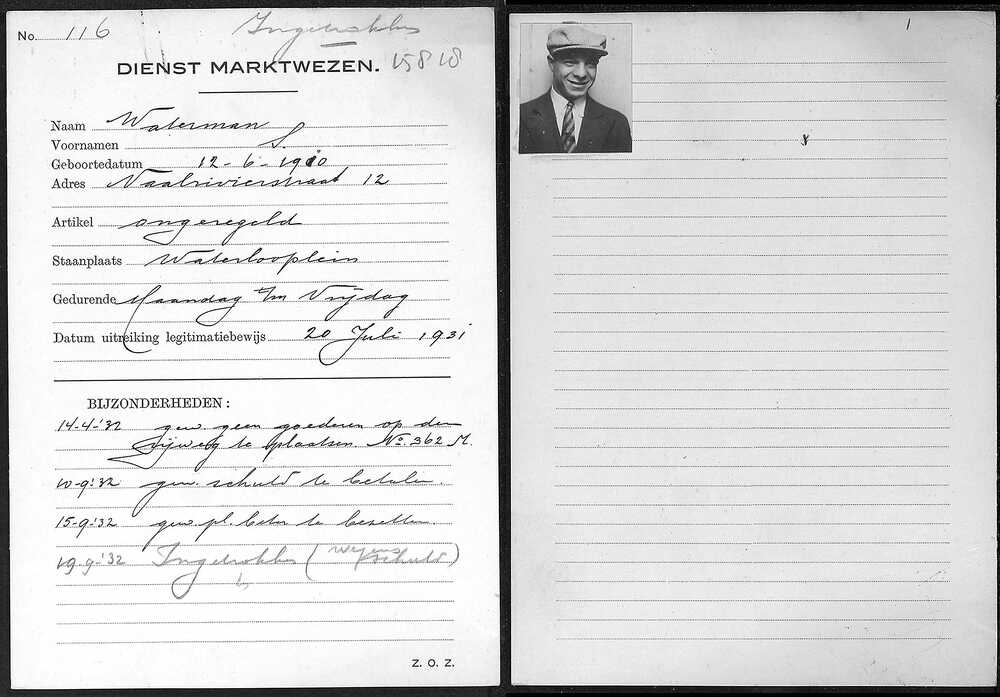 No. 116 Ingetrokken
DIENST MARKTWEZEN. 15818
Naam Waterman
Voornamen S.
Geboortedatum 12-6-1910
Adres Vaalrivierstraat 12
Artikel ongeregeld
Staanplaats Waterlooplein
Gedurende Maandag t/m Vrijdag
Datum uitreiking legitimatiebewijs 20 Juli 1931
BIJZONDERHEDEN:
14-4-'32 gew. geen goederen op den
rijweg te plaatsen No. 362 M.
10-9-'32 gew. schuld te betalen.
15-9-'32 gew. pl. beter te bezetten.
19-9-'32 Ingetrokken (wegens schuld)
Z. O. Z.
1